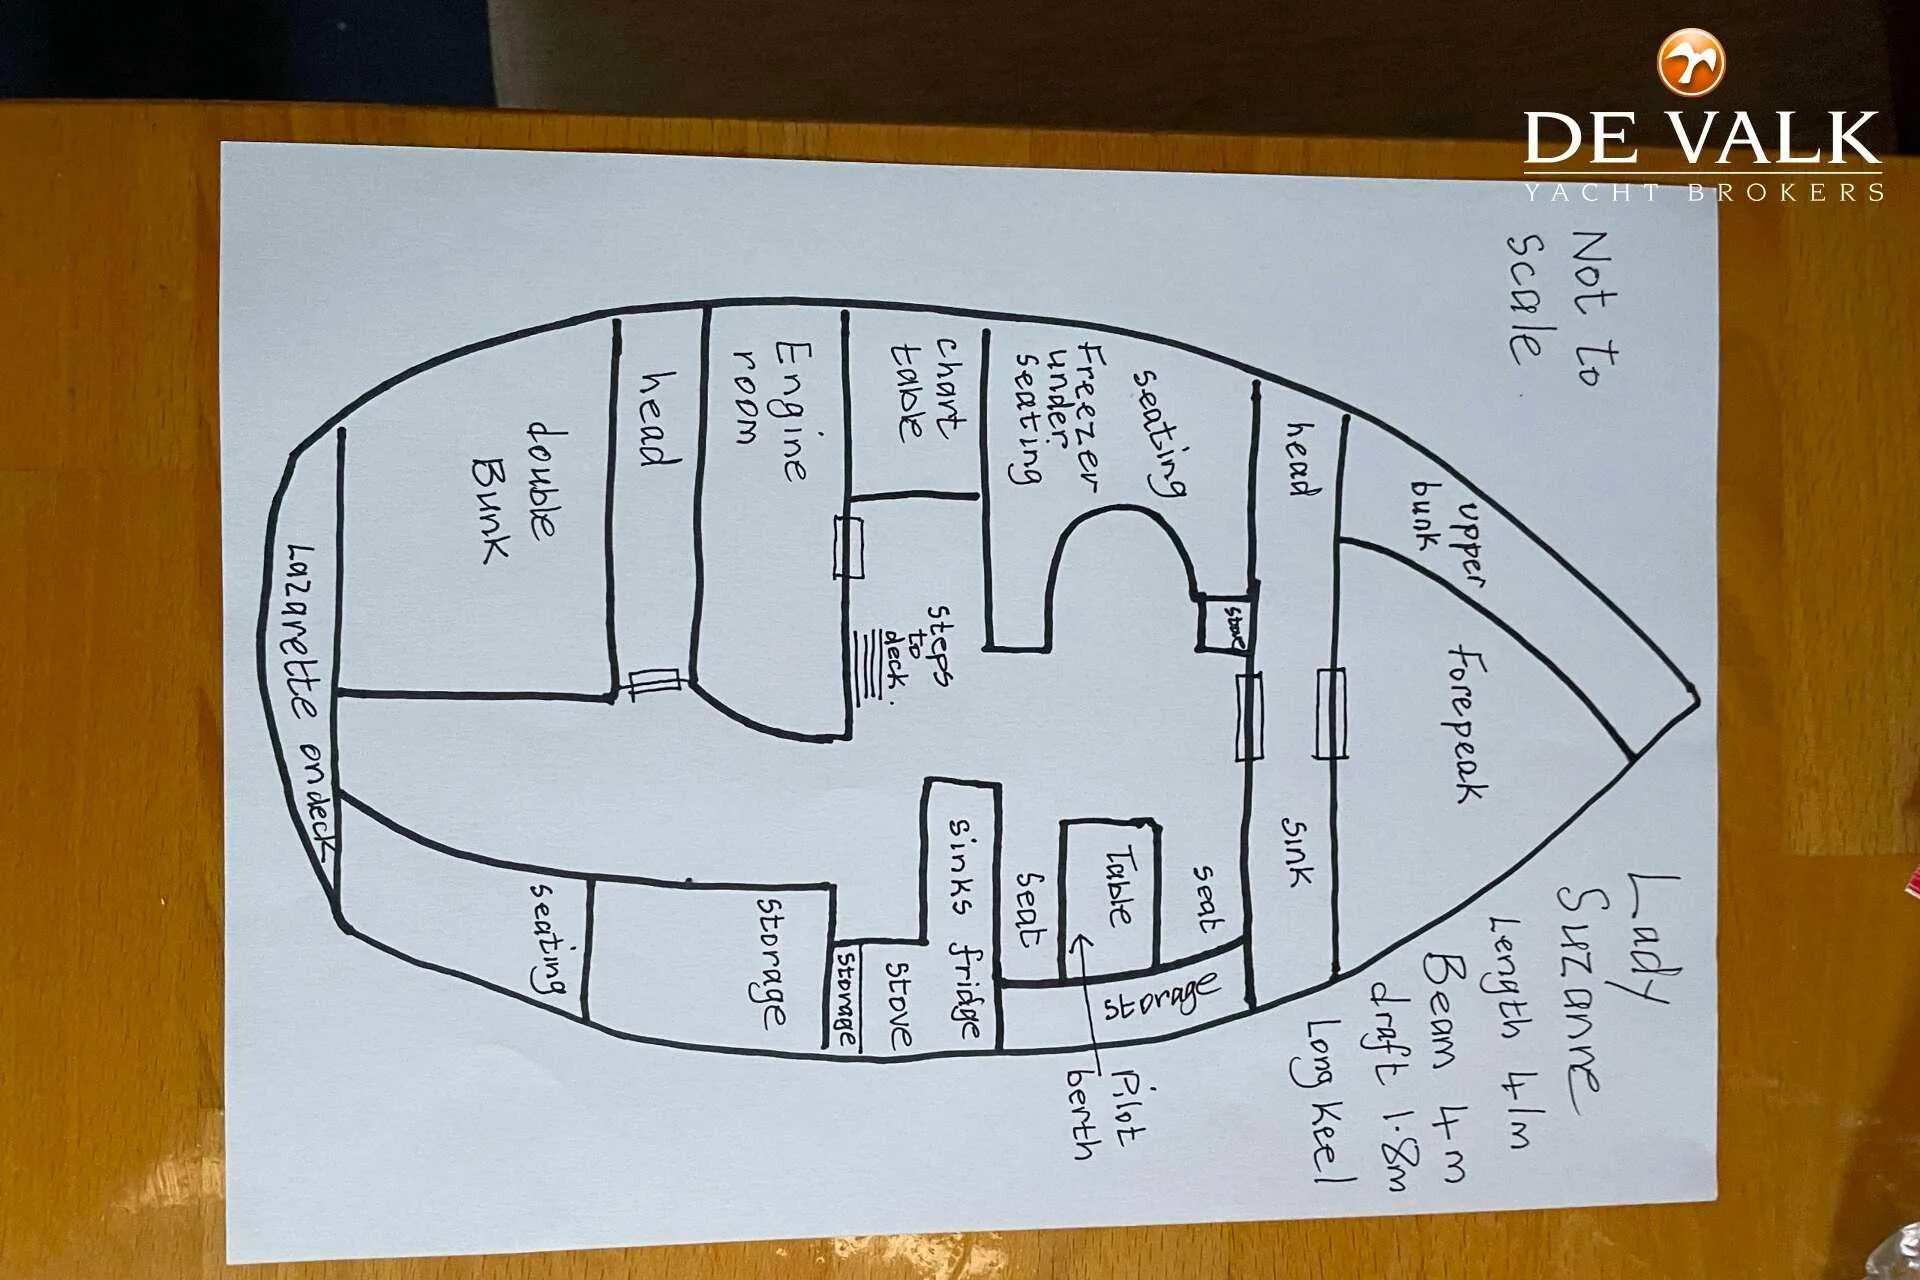 DE VALK
YACHT BROKERS
Not to
scale
Lady
Suzanne
Length 41m
Beam 4m
draft 1.8m
Long Keel
upper
bunk
Forepeak
head
sink
seating
Freezer
under
seating
stove
seat
Table
seat
storage
Pilot
berth
chart
table
steps
to
deck.
sinks fridge
stove
storage
Engine
room
storage
head
double
Bunk
seating
Lazarette on deck